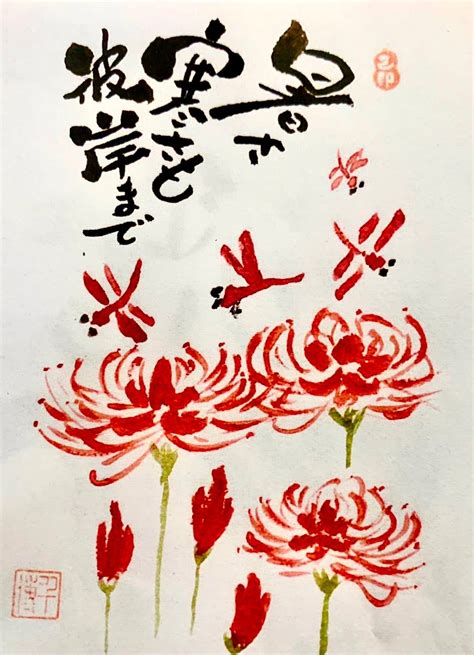 暑さ
寒さも
彼岸まで